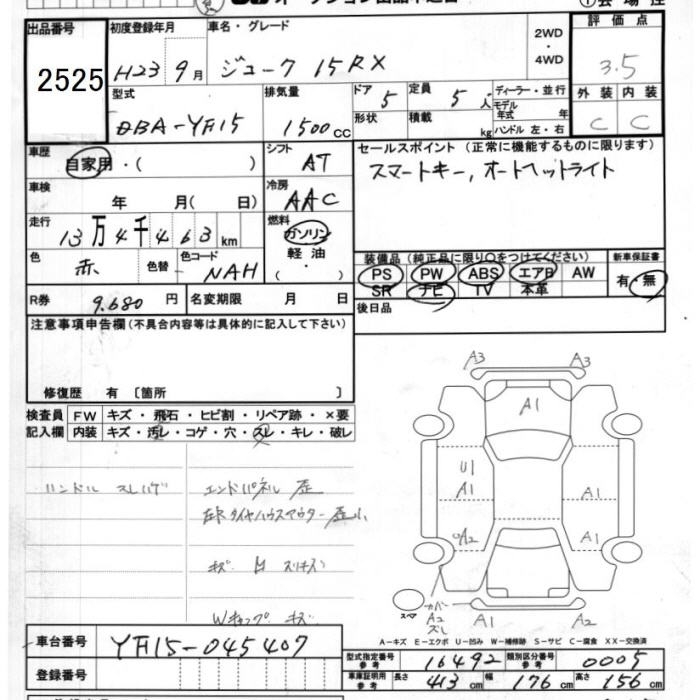 出品番号
2525
初度登録年月
H23 9月
車名・グレード
ジューク 15RX
2WD
・
4WD
評価点
3.5
型式
DBA-YF15
排気量
1500cc
ドア
5
定員
5人
形状
積載
kg
ディーラー・並行
モデル
年式 年
ハンドル 左・右
外装
内装
C
C
車歴
自家用・( )
シフト
AT
セールスポイント (正常に機能するものに限ります)
スマートキー, オートヘットライト
車検
年 月( 日)
冷房
AAC
走行
13万4千463km
燃料
ガソリン
軽油
( )
色
赤
色替
色コード
NAH
装備品 (純正品に限り○をつけてください)
PS PW ABS エアB AW
SR ナビ TV 本革
新車保証書
有・無
R券
9.680円
名変期限 月 日
後日品
注意事項申告欄(不具合内容等は具体的に記入して下さい)
修復歴 有 〔箇所 〕
検査員
記入欄
FW キズ・飛石・ヒビ割・リペア跡・×要
内装 キズ・汚レ・コゲ・穴・スレ・キレ・破レ
ハンドル スレハゲ
エンドパネル 歪
キズ
Wキャップ キズ
A3
A3
A1
U1
A1
A1
A2
A1
スペア
カバー
A2
スレ
A1
A2
A-キズ E-エクボ U-凹み W-補修跡 S-サビ C-腐食 XX-交換済
車台番号
YF15-045407
登録番号
型式指定番号
参考
16492
類別区分番号
参考
0005
車庫証明用
参考
長さ
413cm
幅
176cm
高さ
156cm